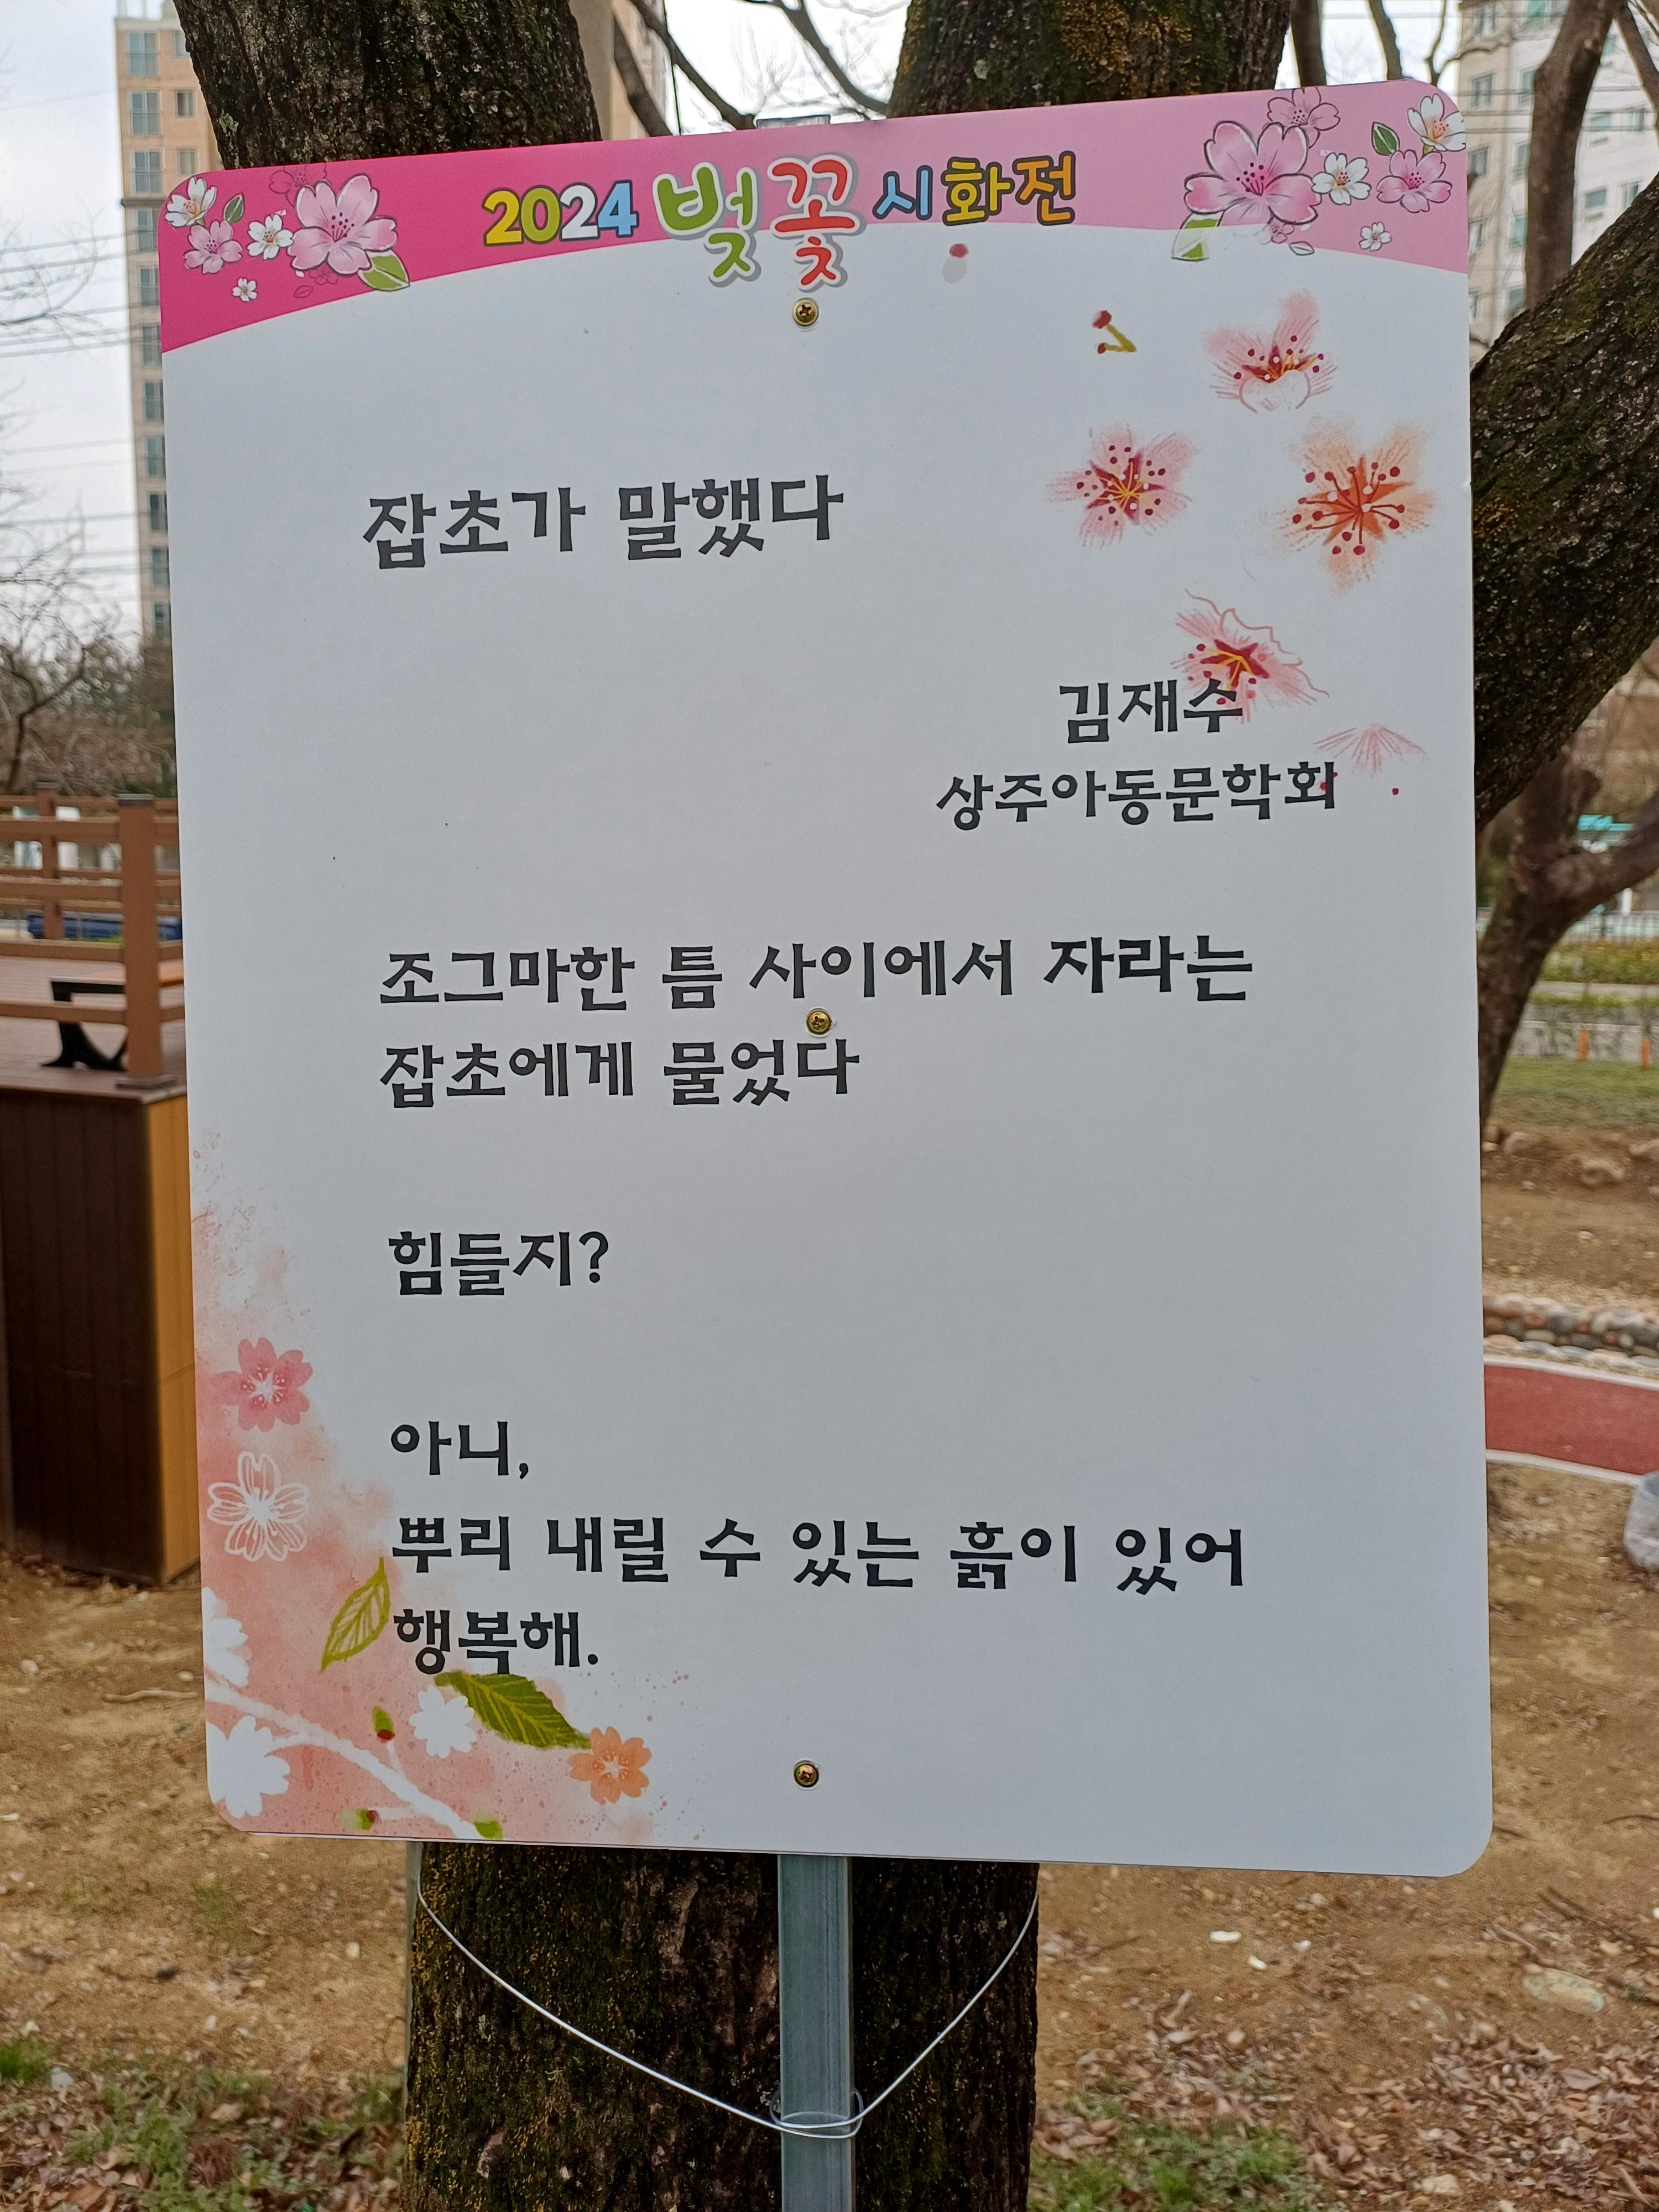 2024 벚꽃 시화전
잡초가 말했다
김재수
상주아동문학회
조그마한 틈 사이에서 자라는
잡초에게 물었다
힘들지?
아니,
뿌리 내릴 수 있는 흙이 있어
행복해.